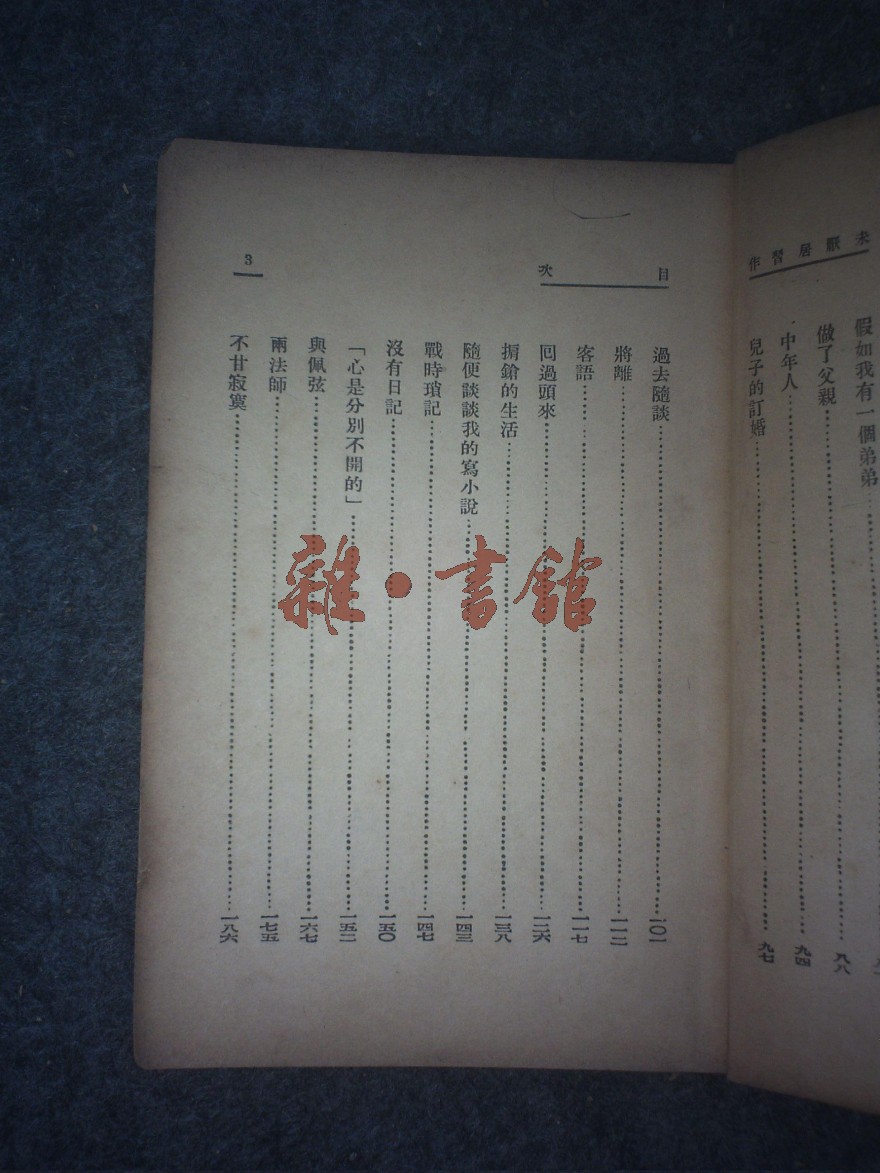 未厭居習作
假如我有一個弟弟
做了父親
中年人……九四
兒子的訂婚……九七
目次
過去隨談……一〇一
將離……一一二
客語……一一七
回過頭來……一二六
掮鎗的生活……一三八
隨便談談我的寫小說……一四三
戰時瑣記……一四七
沒有日記……一五〇
「心是分別不開的」……一五二
與佩弦……一六七
兩法師……一七五
不甘寂寞……一八六
3
雜·書館